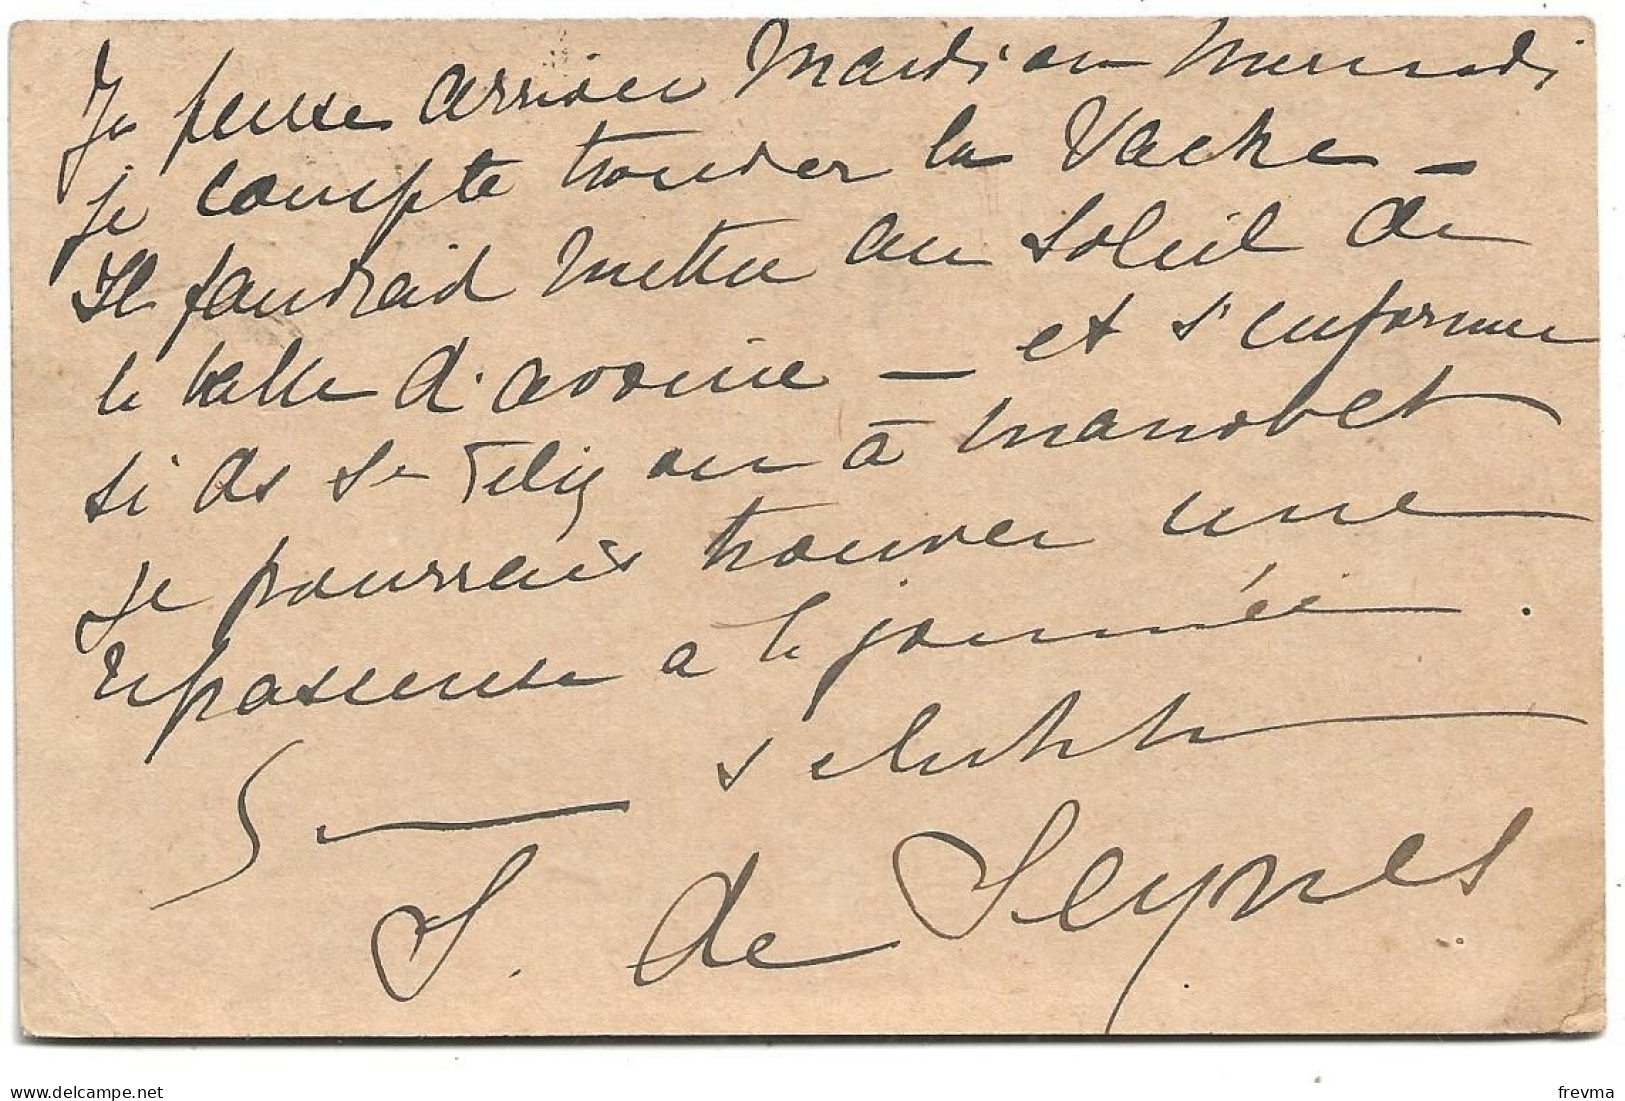 Je pense arriver Mardi ou Mercredi
je compte trouver la Vache -
Il faudrait mettre au Soleil de
la balle d'avoine - et s'informer
si de St Feliz ou à Manobet
je pourrais trouver une
repasseuse à la journée.
S. de Seynes
frevma
delcampe.net